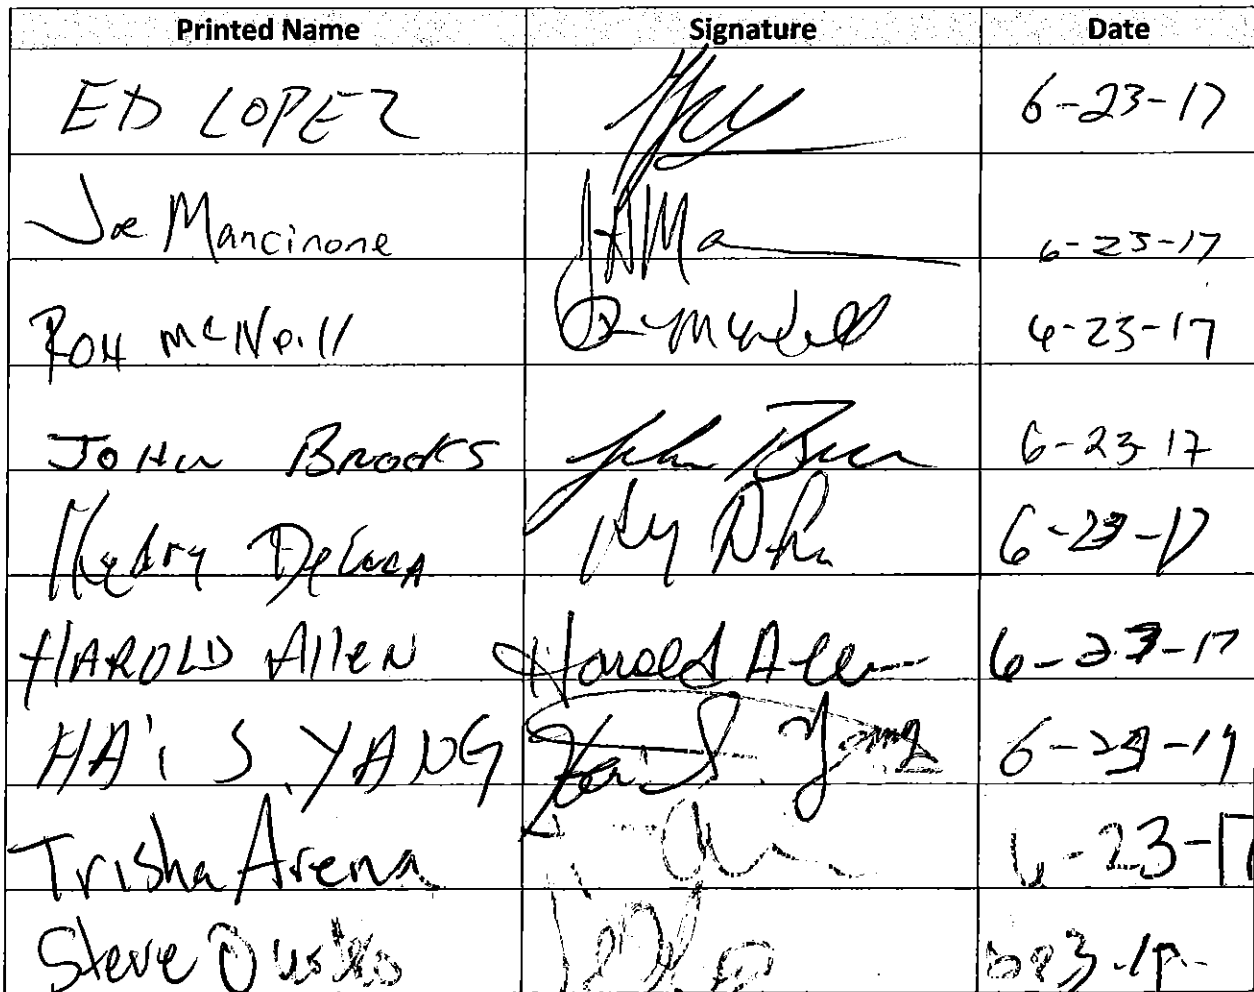 Printed Name Signature Date
ED LOPEZ 6-23-17
Joe Mancinone 6-23-17
Roy McNeill 6-23-17
JOHN BROOKS John 6-23-17
DeLuca 6-23-17
HAROLD AlleN Harold Allen 6-23-17
HAi S. YANG Hai S. Yang 6-23-17
Trisha Arena 6-23-17
Steve